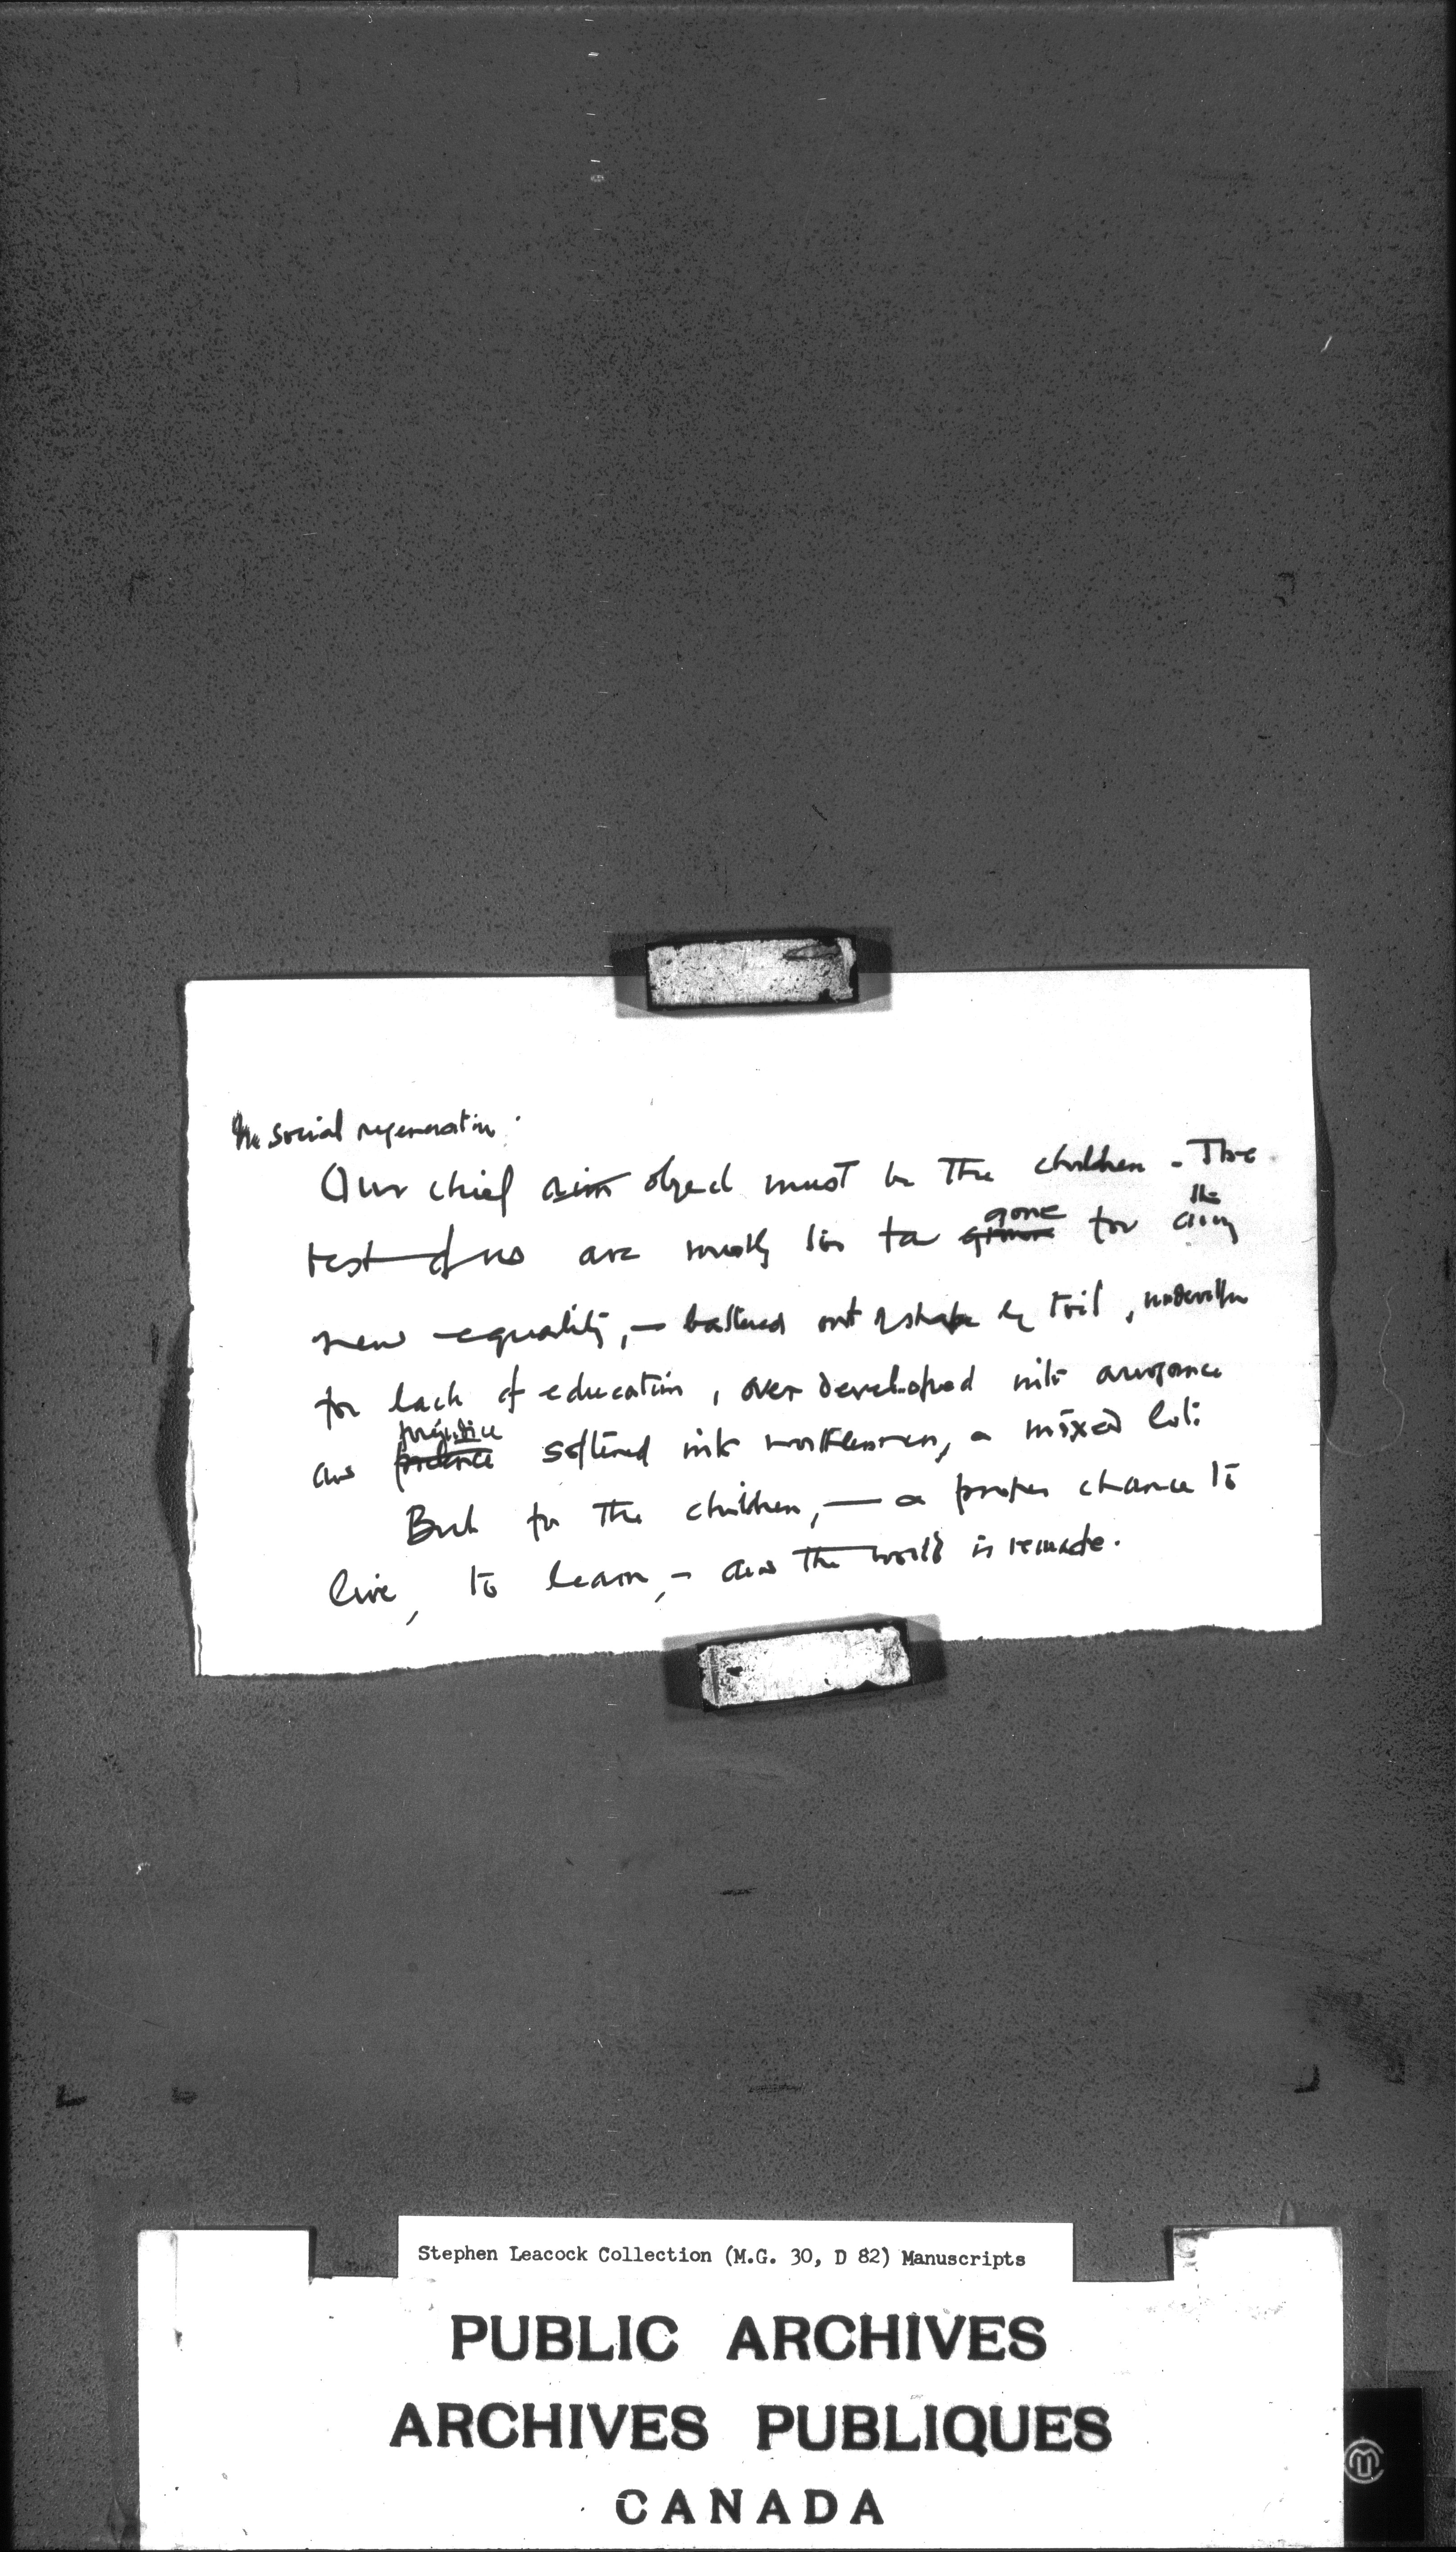 In social regeneration.
Our chief aim object must be the children - The
rest of us are mostly too far gone for the
new equality, — battered out of shape by toil, undersize
for lack of education, over developed into arrogance
and prejudice softened into worthlessness, a mixed lot:
But for the children, — a proper chance to
live, to learn, - and the world is remade.
Stephen Leacock Collection (M.G. 30, D 82) Manuscripts
PUBLIC ARCHIVES
ARCHIVES PUBLIQUES
CANADA